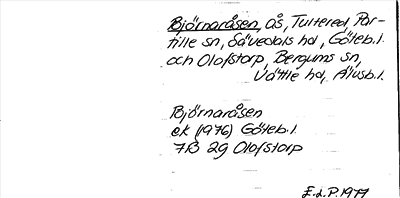 Björnaråsen, ås, Tultered, Par-
tille sn, Sävedals hd, Göteb.l.
och Olofstorp, Bergums sn,
Vättle hd, Älvsb.l.
Björnaråsen
ek (1976) Göteb.l.
7B 2g Olofstorp
E.L.P. 1977